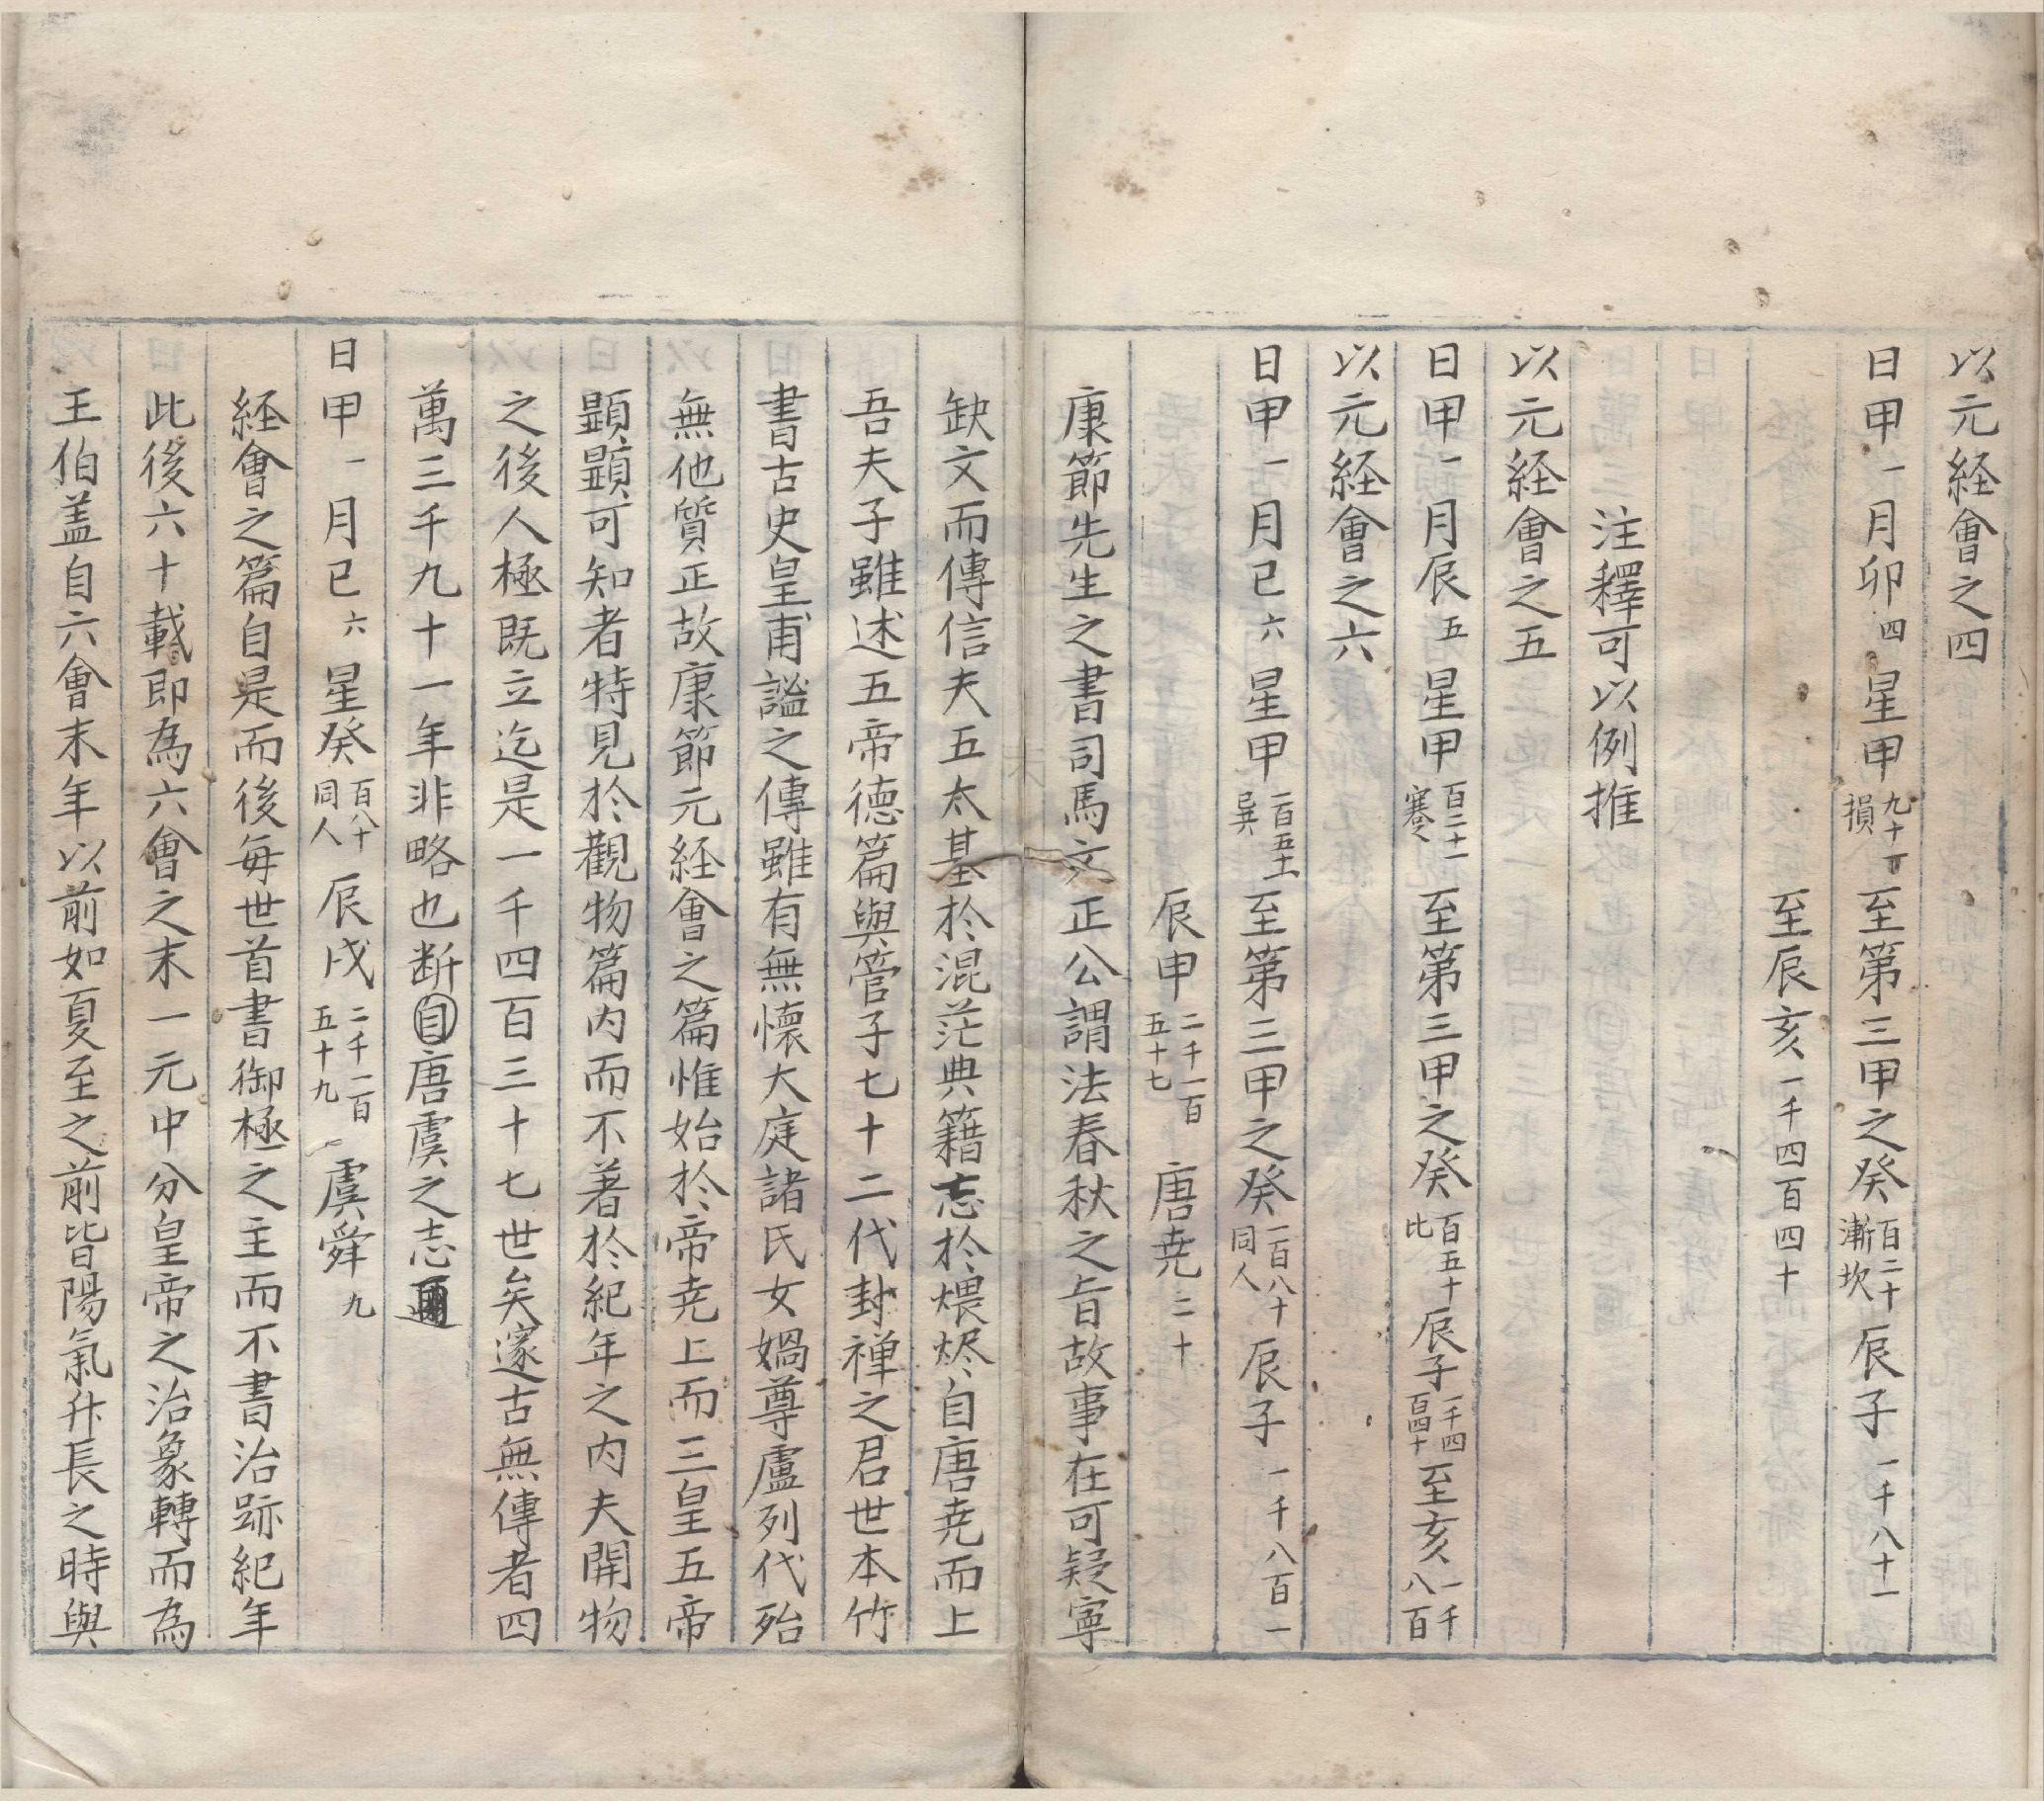 以元経會之四
日甲一月卯四星甲九十一損至第三甲之癸百二十漸坎辰子一千八十一
至辰亥一千四百四十
注釋可以例推
以元経會之五
日甲一月辰五星甲百二十一蹇至第三甲之癸百五十比辰子一千四百四十至亥一千八百
以元経會之六
日甲一月巳六星甲一百五十一巽至第三甲之癸一百八十同人辰子一千八百一
辰申二千一百五十七唐尭二十
康節先生之書司馬文正公謂法春秋之旨故事在可疑寧
缺文而傳信夫五太基於混茫典籍志於煨烬自唐尭而上
吾夫子雖述五帝徳篇與管子七十二代封禅之君世本竹
書古史皇甫謐之傳雖有無懷大庭諸氏女媧尊盧列代殆
無他質正故康節元経會之篇惟始於帝尭上而三皇五帝
顕顕可知者特見於觀物篇内而不著於紀年之内夫開物
之後人極既立迄是一千四百三十七世矣邃古無傳者四
萬三千九十一年非略也断自唐虞之志
日甲一月巳六星癸百八十同人辰戌二千一百五十九虞舜九
経會之篇自是而後毎世首書御極之主而不書治跡紀年
此後六十載即為六會之末一元中分皇帝之治象轉而為
王伯盖自六會末年以前如夏至之前皆陽氣升長之時與